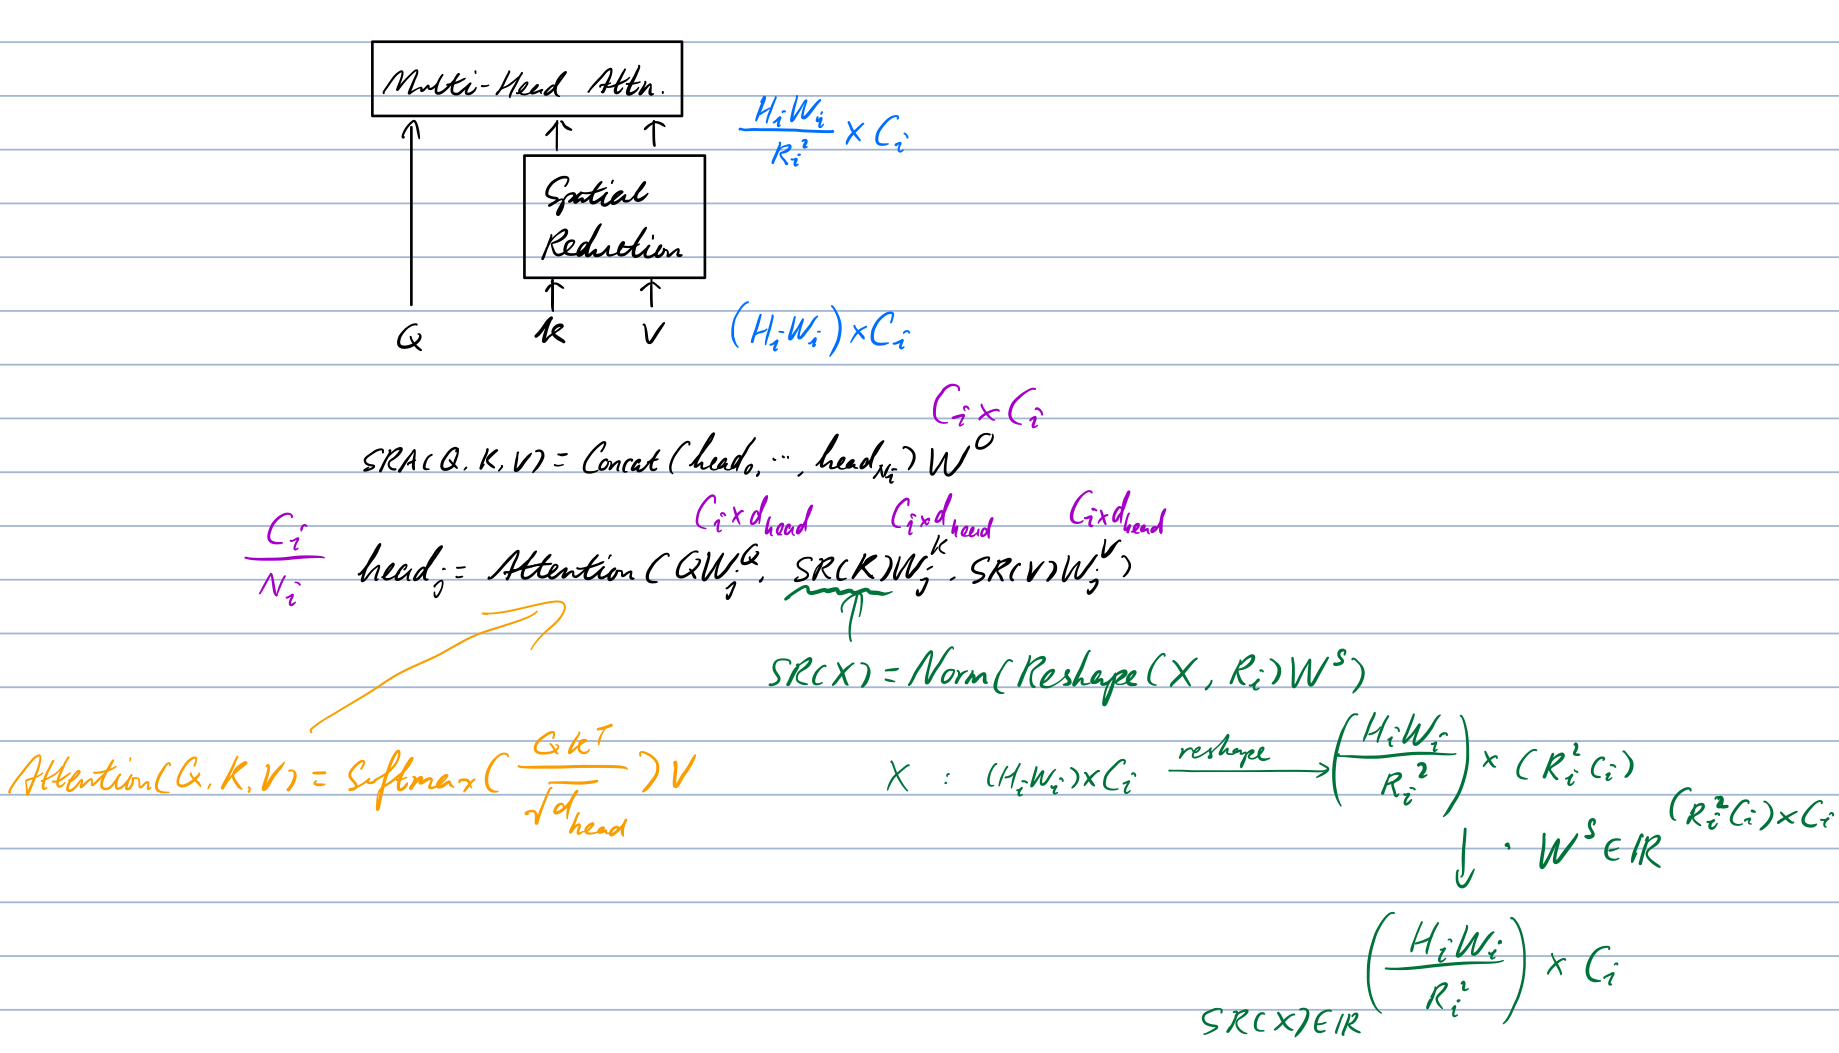 Multi-Head Attn.
H_i W_i / R_i² × C_i
Spatial
Reduction
Q K V (H_i W_i) × C_i
C_i × C_i
SRA(Q, K, V) = Concat(head_0, ..., head_{N_i}) W^O
C_i × d_head C_i × d_head C_i × d_head
C_i / N_i head_j = Attention(Q W_j^Q, SR(K) W_j^K, SR(V) W_j^V)
SR(X) = Norm(Reshape(X, R_i) W^S)
Attention(Q, K, V) = Softmax(QK^T / √d_head) V
X : (H_i W_i) × C_i reshape (H_i W_i / R_i²) × (R_i² C_i)
· W^S ∈ ℝ^{(R_i² C_i) × C_i}
SR(X) ∈ ℝ^{(H_i W_i / R_i²) × C_i}